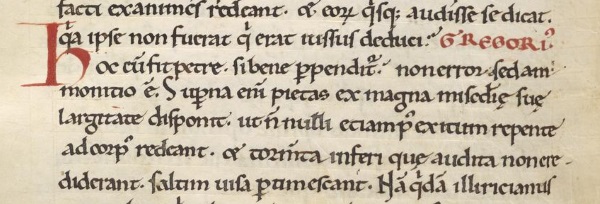 facti exanimes redeant. & eorꝝ qisq; audisse se dicat.
q̃a ipse non fuerat q̃ erat iussus deduci. GREGORIꝰ
Hoc cũ fit petre. si bene ꝑpenditᷣ. non error. sed am
monitio ẽ. Supna eni pietas ex magna misc̃dię suę
largitate disponit. ut ñ nulli etiam p̾ exitum repente
ad corpꝰ redeant. & torm̃ta inferi quę audita non cre-
diderant. saltim uisa ꝑtimescant. Nã q̃dã illiricianus